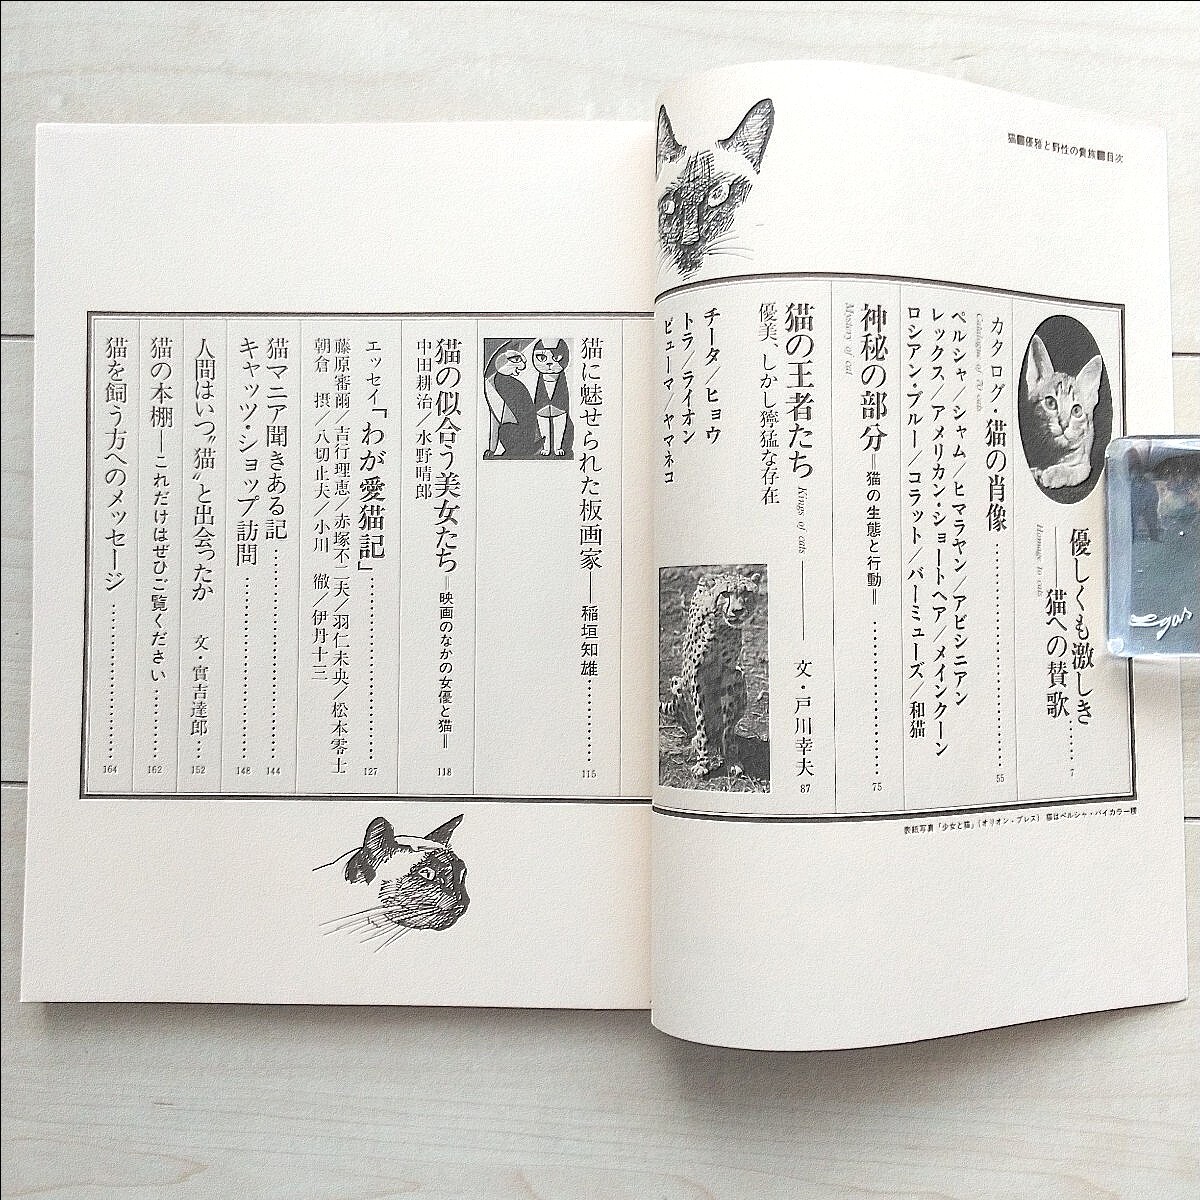 猫■優雅と野性の貴族■目次
優しくも激しき
——猫への賛歌……7
Homage to cats
カタログ・猫の肖像……55
Catalogue of 70 cats
ペルシャ/シャム/ヒマラヤン/アビシニアン
レックス/アメリカン・ショートヘア/メインクーン
ロシアン・ブルー/コラット/バーミューズ/和猫
神秘の部分=猫の生態と行動=……75
Mystery of cat
猫の王者たち Kings of cats ——— 文・戸川幸夫 87
優美、しかし獰猛な存在
チータ/ヒョウ
トラ/ライオン
ピューマ/ヤマネコ
表紙写真「少女と猫」(オリオン・プレス) 猫はペルシャ・バイカラー種
猫に魅せられた板画家——稲垣知雄……115
猫の似合う美女たち=映画のなかの女優と猫= 118
中田耕治/水野晴郎
エッセイ「わが愛猫記」……127
藤原審爾/吉行理恵/赤塚不二夫/羽仁未央/松本零士
朝倉 摂/八切止夫/小川 徹/伊丹十三
猫マニア聞きある記……144
キャッツ・ショップ訪問……148
人間はいつ“猫”と出会ったか 文・實吉達郎……152
猫の本棚——これだけはぜひご覧ください……162
猫を飼う方へのメッセージ……164
egas